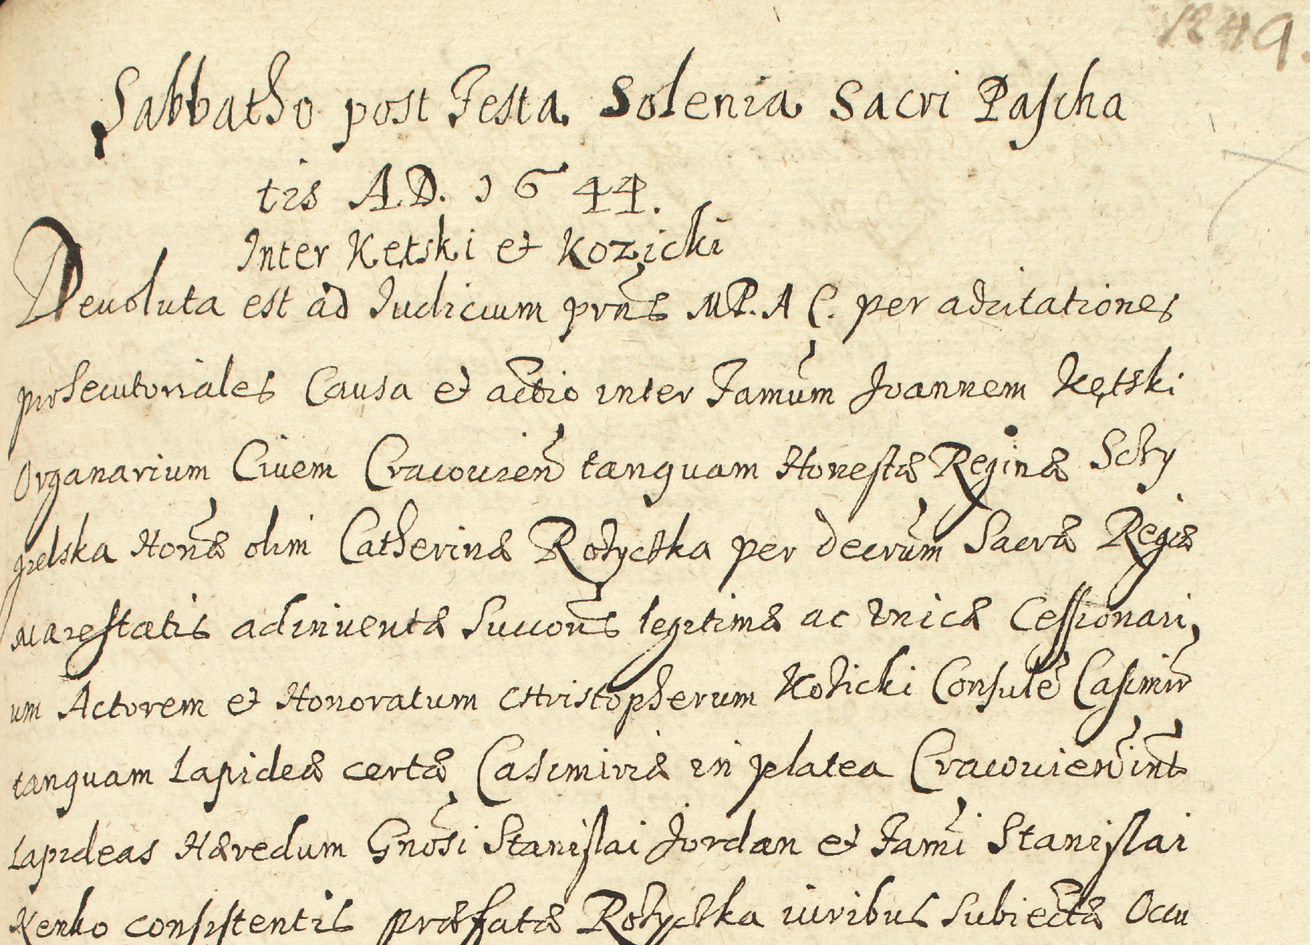 1249.
Sabbatho post Festa Solenia Sacri Pascha
tis A.D. 1644.
Inter Kętski et Kozicki
Devoluta est ad Iudicium prns MP. A C. per adcitationes
prosecutoriales Causa et actio inter Famum Joannem Kętski
Organarium Civem Cracovien tanquam Honestæ Reginæ
Honæ olim Catherinæ Rożyczka per decrum Sacræ Regiæ
Maiestatis adinventæ Succoris legitimæ ac vnicæ Cessionari
um Actorem et Honoratum Christopherum Kozicki Consule Casimir
tanquam Lapideæ certæ Casimiriæ in platea Cracovien int
Lapideas Hæredum Gnosi Stanislai Jordan et Fami Stanislai
Kenko consistentis præfatæ Rożyczka iuribus subiectæ Occu